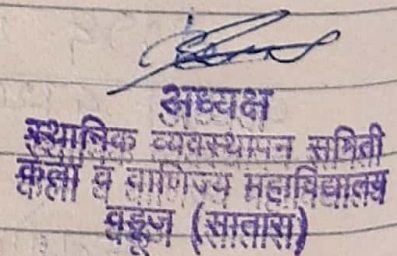 अध्यक्ष
स्थानिक व्यवस्थापन समिती
कला व वाणिज्य महाविद्यालय
वडूज (सातारा)